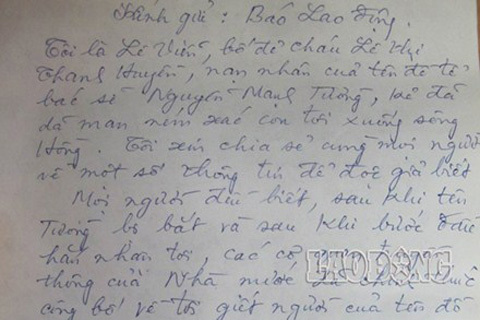 Kính gửi: Báo Lao Động.
Tôi là Lê Viễn, bố đẻ cháu Lê Thị
Thanh Huyền, nạn nhân của tên đồ tể
bác sĩ Nguyễn Mạnh Tường, kẻ đã
dã man ném xác con tôi xuống sông
Hồng. Tôi xin chia sẻ cùng mọi người
về một số thông tin để đọc giả biết
Mọi người đều biết, sau khi tên
Tường bị bắt và sau khi bước đầu
hắn nhận tội, các cơ quan truyền
thông của Nhà nước đã chính thức
công bố về tội giết người của tên đồ
LAODONG